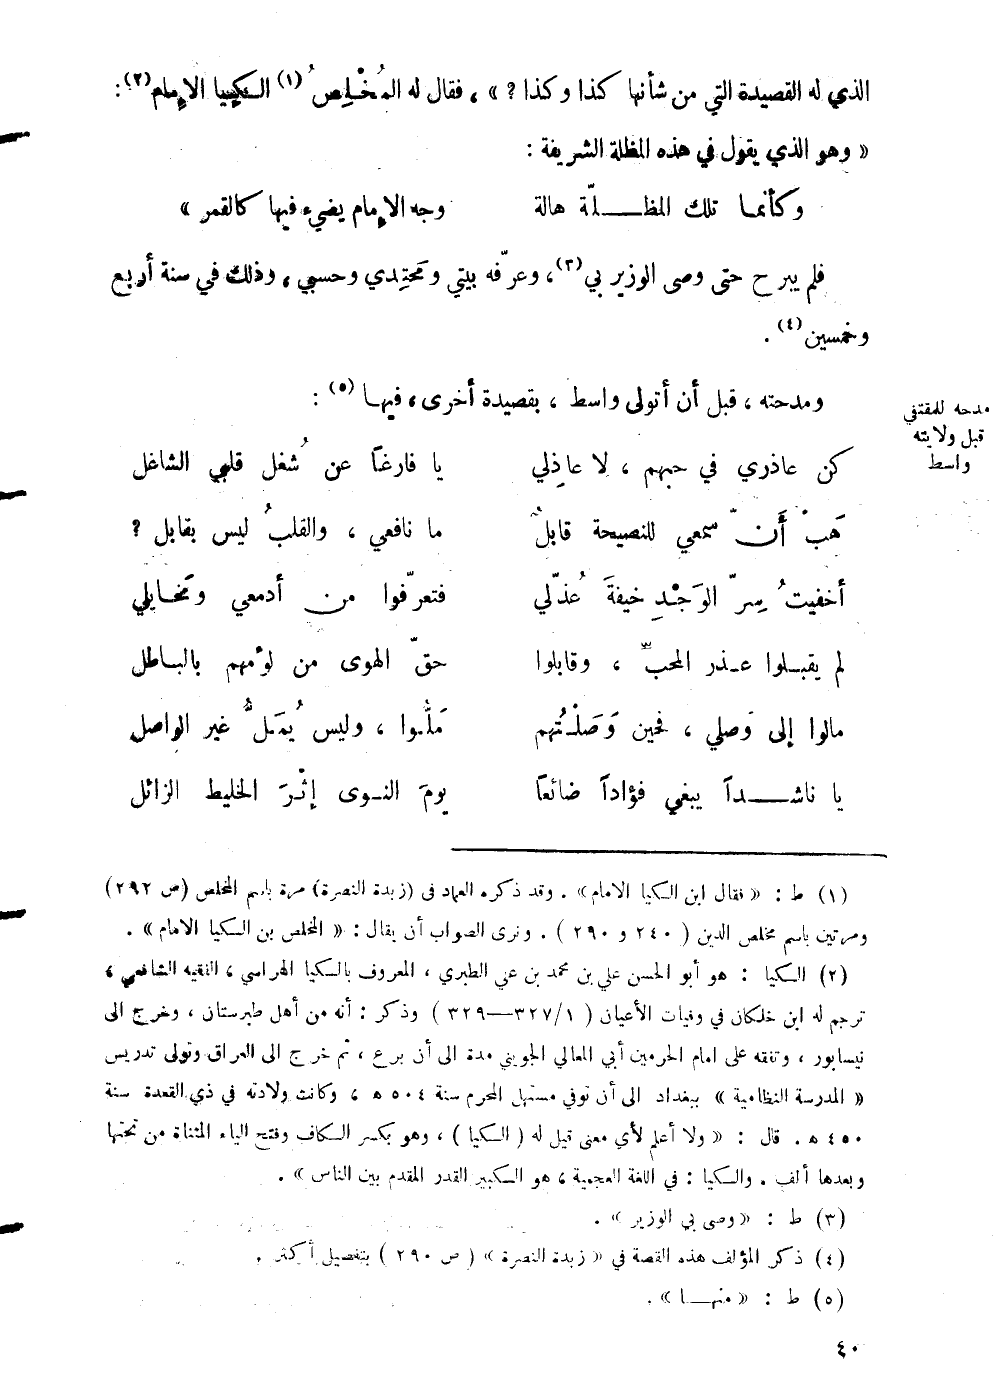 الذي له القصيدة التي من شأنها كذا وكذا ؟ » ، فقال له المُخْلِصُ (١) الكيا الإمام (٢) :
« وهو الذي يقول في هذه المظلة الشريفة :
وكأنما تلك المظـــلّة هالة وجه الإمام يضيء فيها كالقمر »
فلم يبرح حتى وصى الوزير بي (٣) ، وعرّفه بيتي ومَحتِدي وحسبي ، وذلك في سنة أربع
وخمسين (٤) .
ومدحته ، قبل أن أتولى واسط ، بقصيدة أخرى ، فيها (٥) :
مدحه للمقتفي
قبل ولايته
واسط
كن عاذري في حبهم ، لا عاذِلي يا فارغاً عن شُغل قلبي الشاغل
هَبْ أَنّ سمعي للنصيحة قابلٌ ما نافعي ، والقلبُ ليس بقابل ؟
أخفيتُ سِرّ الوَجْدِ خيفةَ عُذّلي فتعرّفوا من أدمعي ومَخايلي
لم يقبلوا عذر المحبّ ، وقابلوا حقّ الهوى من لؤمهم بالباطل
مالوا إلى وَصلي ، فحين وَصَلْتُهم مَلُّوا ، وليس يُمَلُّ غير الواصل
يا ناشـــداً يبغي فؤاداً ضائعاً يومَ النوى إثْرَ الخليط الزائل
(١) ط : « فقال ابن الكيا الامام » . وقد ذكره العماد في (زبدة النصرة) مرة باسم المخلص (ص ٢٩٢)
ومرتين باسم مخلص الدين ( ٢٤٠ و ٢٩٠ ) . ونرى الصواب أن يقال : « المخلص بن الكيا الامام » .
(٢) الكيا : هو أبو الحسن علي بن محمد بن علي الطبري ، المعروف بالكيا الهراسي ، الفقيه الشافعي ،
ترجم له ابن خلكان في وفيات الأعيان ( ١/٣٢٧—٣٢٩ ) وذكر : أنه من أهل طبرستان ، وخرج الى
نيسابور ، وتفقه على امام الحرمين أبي المعالي الجويني مدة الى أن برع ، ثم خرج الى العراق وتولى تدريس
« المدرسة النظامية » ببغداد الى أن توفي مستهل المحرم سنة ٥٠٤ هـ ، وكانت ولادته في ذي القعدة سنة
٤٥٠ هـ . قال : « ولا أعلم لأي معنى قيل له ( الكيا ) ، وهو بكسر الكاف وفتح الياء المثناة من تحتها
وبعدها ألف . والكيا : في اللغة العجمية ، هو الكبير القدر المقدم بين الناس » .
(٣) ط : « وصى بي الوزير » .
(٤) ذكر المؤلف هذه القصة في « زبدة النصرة » ( ص ٢٩٠ ) بتفصيل أكثر .
(٥) ط : « منهـــا » .
٤٠